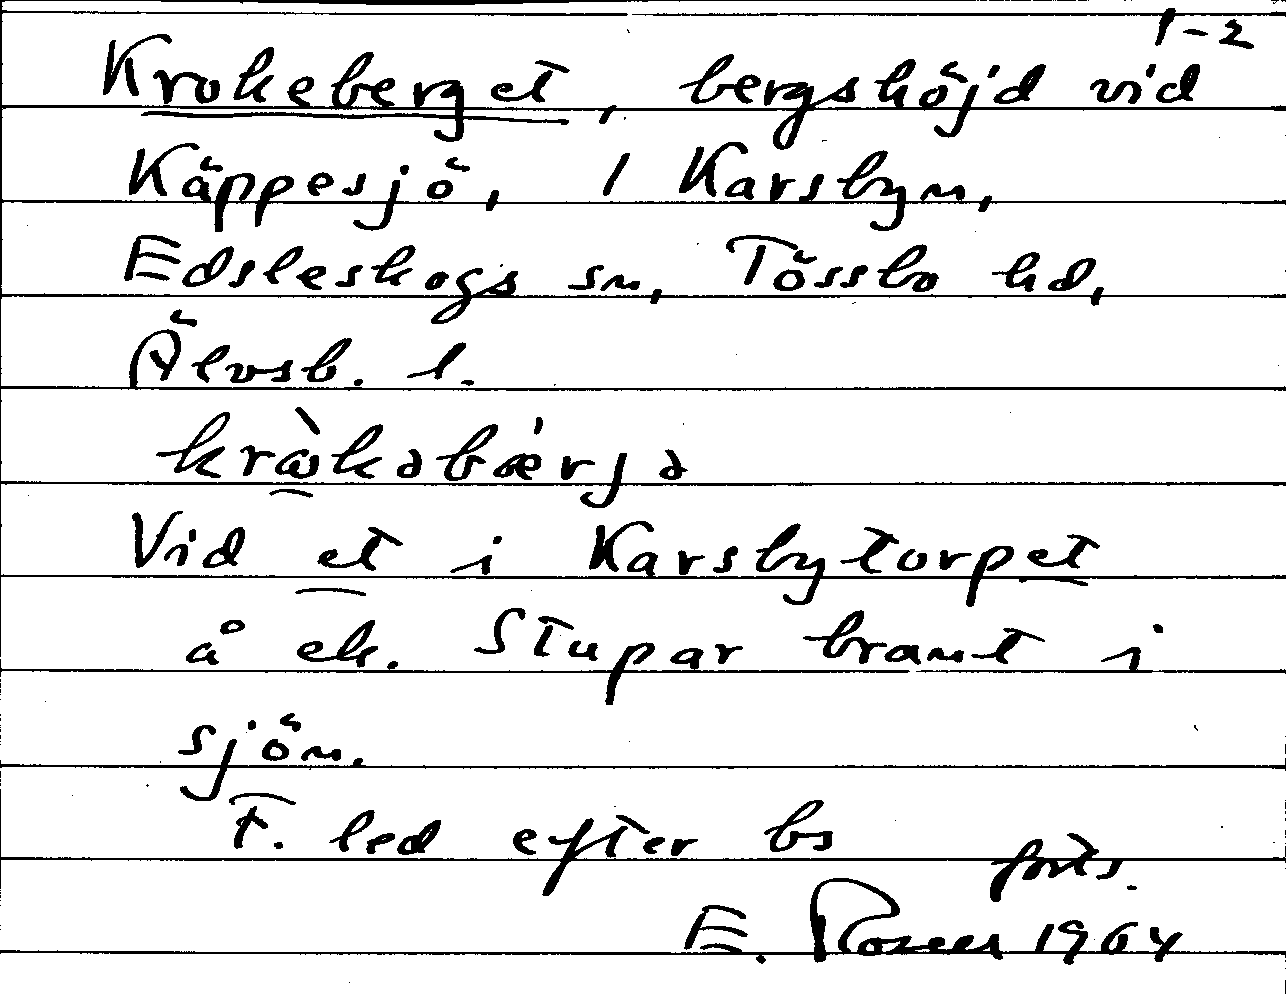 1-2
Krokeberget, bergshöjd vid
Käppesjö, 1 Karsbyn,
Edsleskogs sn, Tössbo hd,
Älvsb. l.
Vid et i Karsbytorpet
å ek. Stupar brant i
sjön.
F. led efter bs
forts.
E. 1964